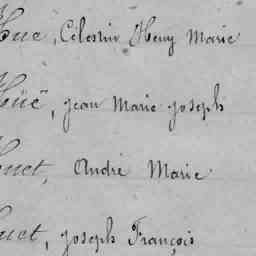 Hue, Célestin Henry Marie
Hüë, Jean Marie Joseph
Huet, André Marie
Huet, Joseph François